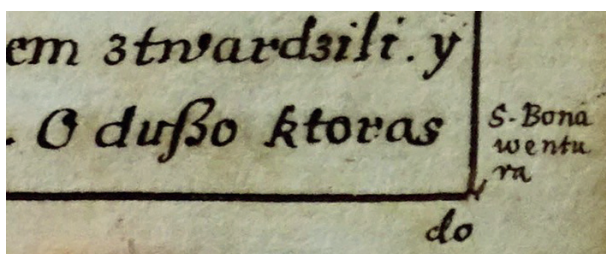 em ztwardzili. y
. O dußo ktoras
S. Bona
wentu
ra
do